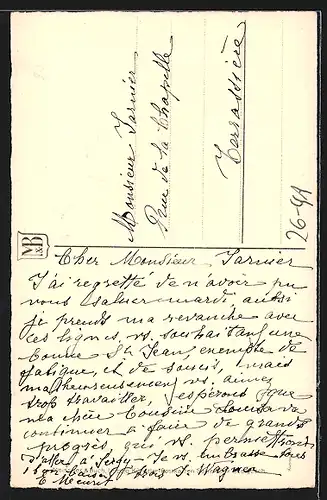 Monsieur Tarnier
Rue de la Chapelle
Terrassière
26-91
MB&
Cher Monsieur Tarnier
J'ai regretté de n'avoir pu
vous saluer mardi, aussi
je prends ma revanche avec
ces lignes, vs. souhaitant une
bonne St Jean, exempte de
fatigue, et de soucis, mais
malheureusement, vs. aimez
trop travailler, j'espérons que
ma chère Cousine Louisa va
continuer à faire de grands
progrès, qui vs. permettrons
d'aller à Jersy - Je vs. embrasse tous
bons baisers S. Wagner
E Meuret